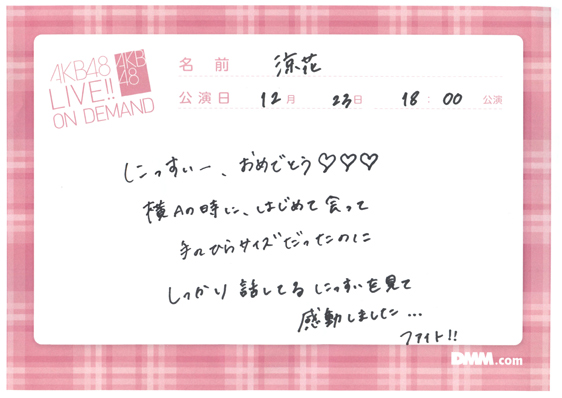 AKB48
LIVE!!
ON DEMAND
AKB
48
名前 涼花
公演日 12月 23日 18:00 公演
にっすぃー、おめでとう♡♡♡
横Aの時に、はじめて会って
手のひらサイズだったのに
しっかり話してるにっすぃを見て
感動しました…
ファイト!!
DMM.com